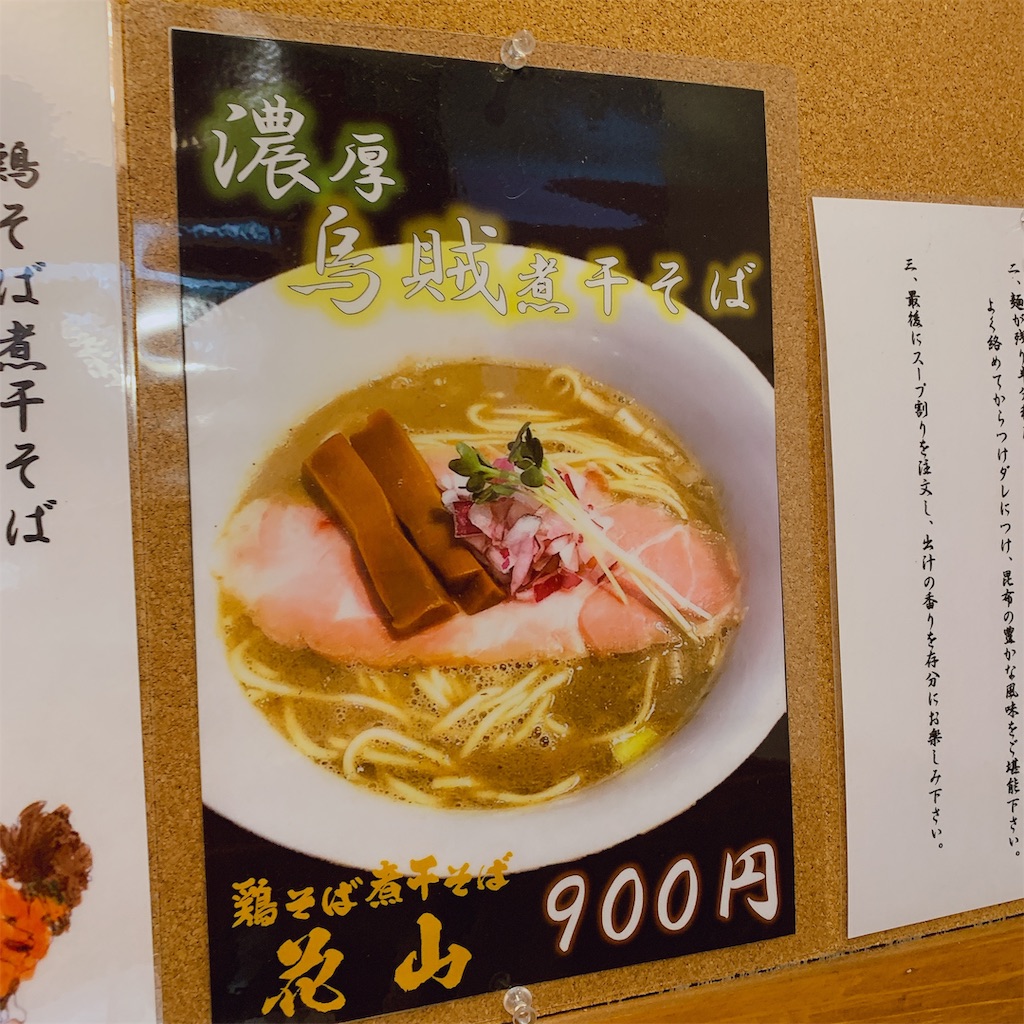 濃厚
烏賊煮干そば
鶏そば煮干そば
花山
900円
鶏そば煮干そば
よく絡めてからつけダレにつけ、昆布の豊かな風味をご堪能下さい。
三、最後にスープ割りを注文し、出汁の香りを存分にお楽しみ下さい。